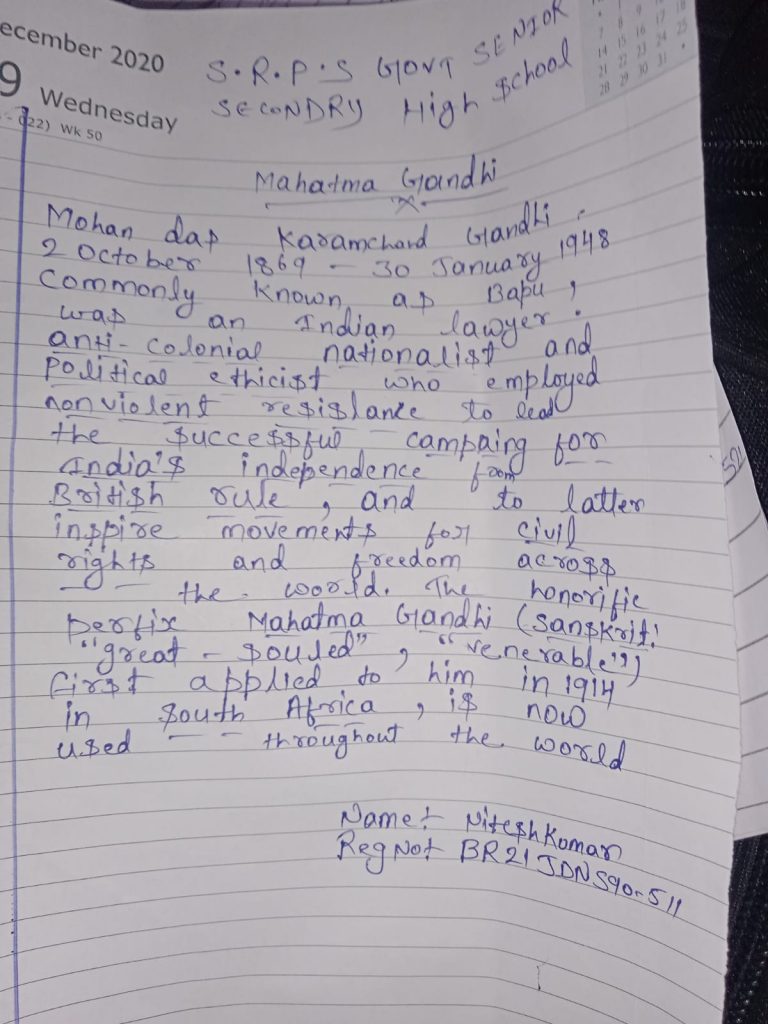 ecember 2020
9 Wednesday
22) Wk 50
S.R.P.S GOVT SENIOR
SECONDRY High School
Mahatma Gandhi
Mohan das Karamchand Gandhi
2 October 1869 - 30 January 1948
Commonly known as Bapu,
was an Indian lawyer.
anti-colonial nationalist and
political ethicist who employed
nonviolent resislance to lead
the successful campaing for
India's independence from
British rule, and to latter
inspire movements for civil
rights and freedom across
the world. The honorific
perfix Mahatma Gandhi (sanskrit!
"great-souled", "venerable")
first applied to him in 1914
in South Africa, is now
used throughout the world
Name:- Nitesh Kumar
Reg No:- BR21JDNS90-511
7 8 9 10 11
14 15 16 17 18
21 22 23 24 25
28 29 30 31